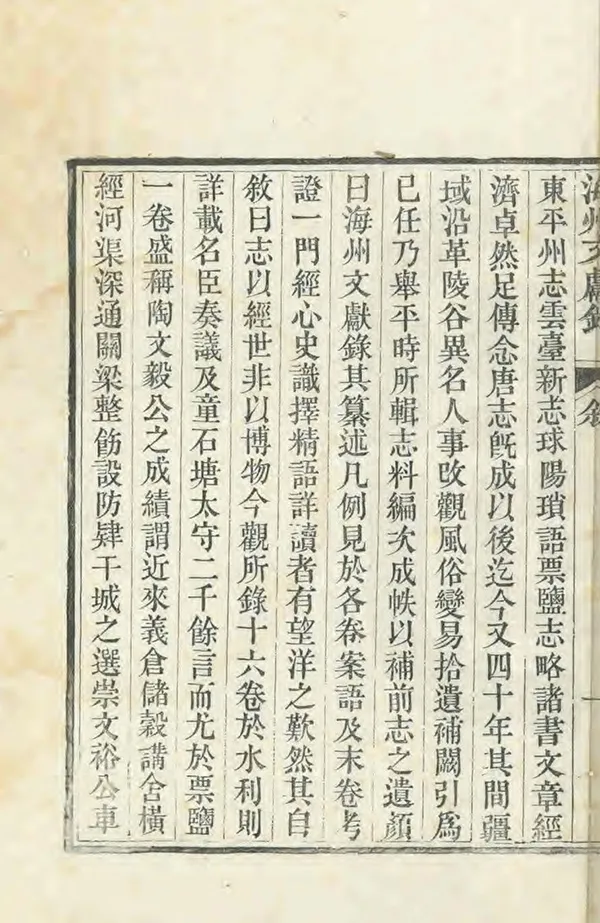 海州文獻錄 敘
東平州志雲臺新志球陽瑣語票鹽志略諸書文章經
濟卓然足傳念唐志既成以後迄今又四十年其間疆
域沿革陵谷異名人事改觀風俗變易拾遺補闕引為
已任乃舉平時所輯志料編次成帙以補前志之遺顏
曰海州文獻錄其纂述凡例見於各卷案語及末卷考
證一門經心史識擇精語詳讀者有望洋之歎然其自
敘曰志以經世非以博物今觀所錄十六卷於水利則
詳載名臣奏議及童石塘太守二千餘言而尤於票鹽
一卷盛稱陶文毅公之成績謂近來義倉儲穀講舍橫
經河渠深通關梁整飭設防肄干城之選崇文裕公車